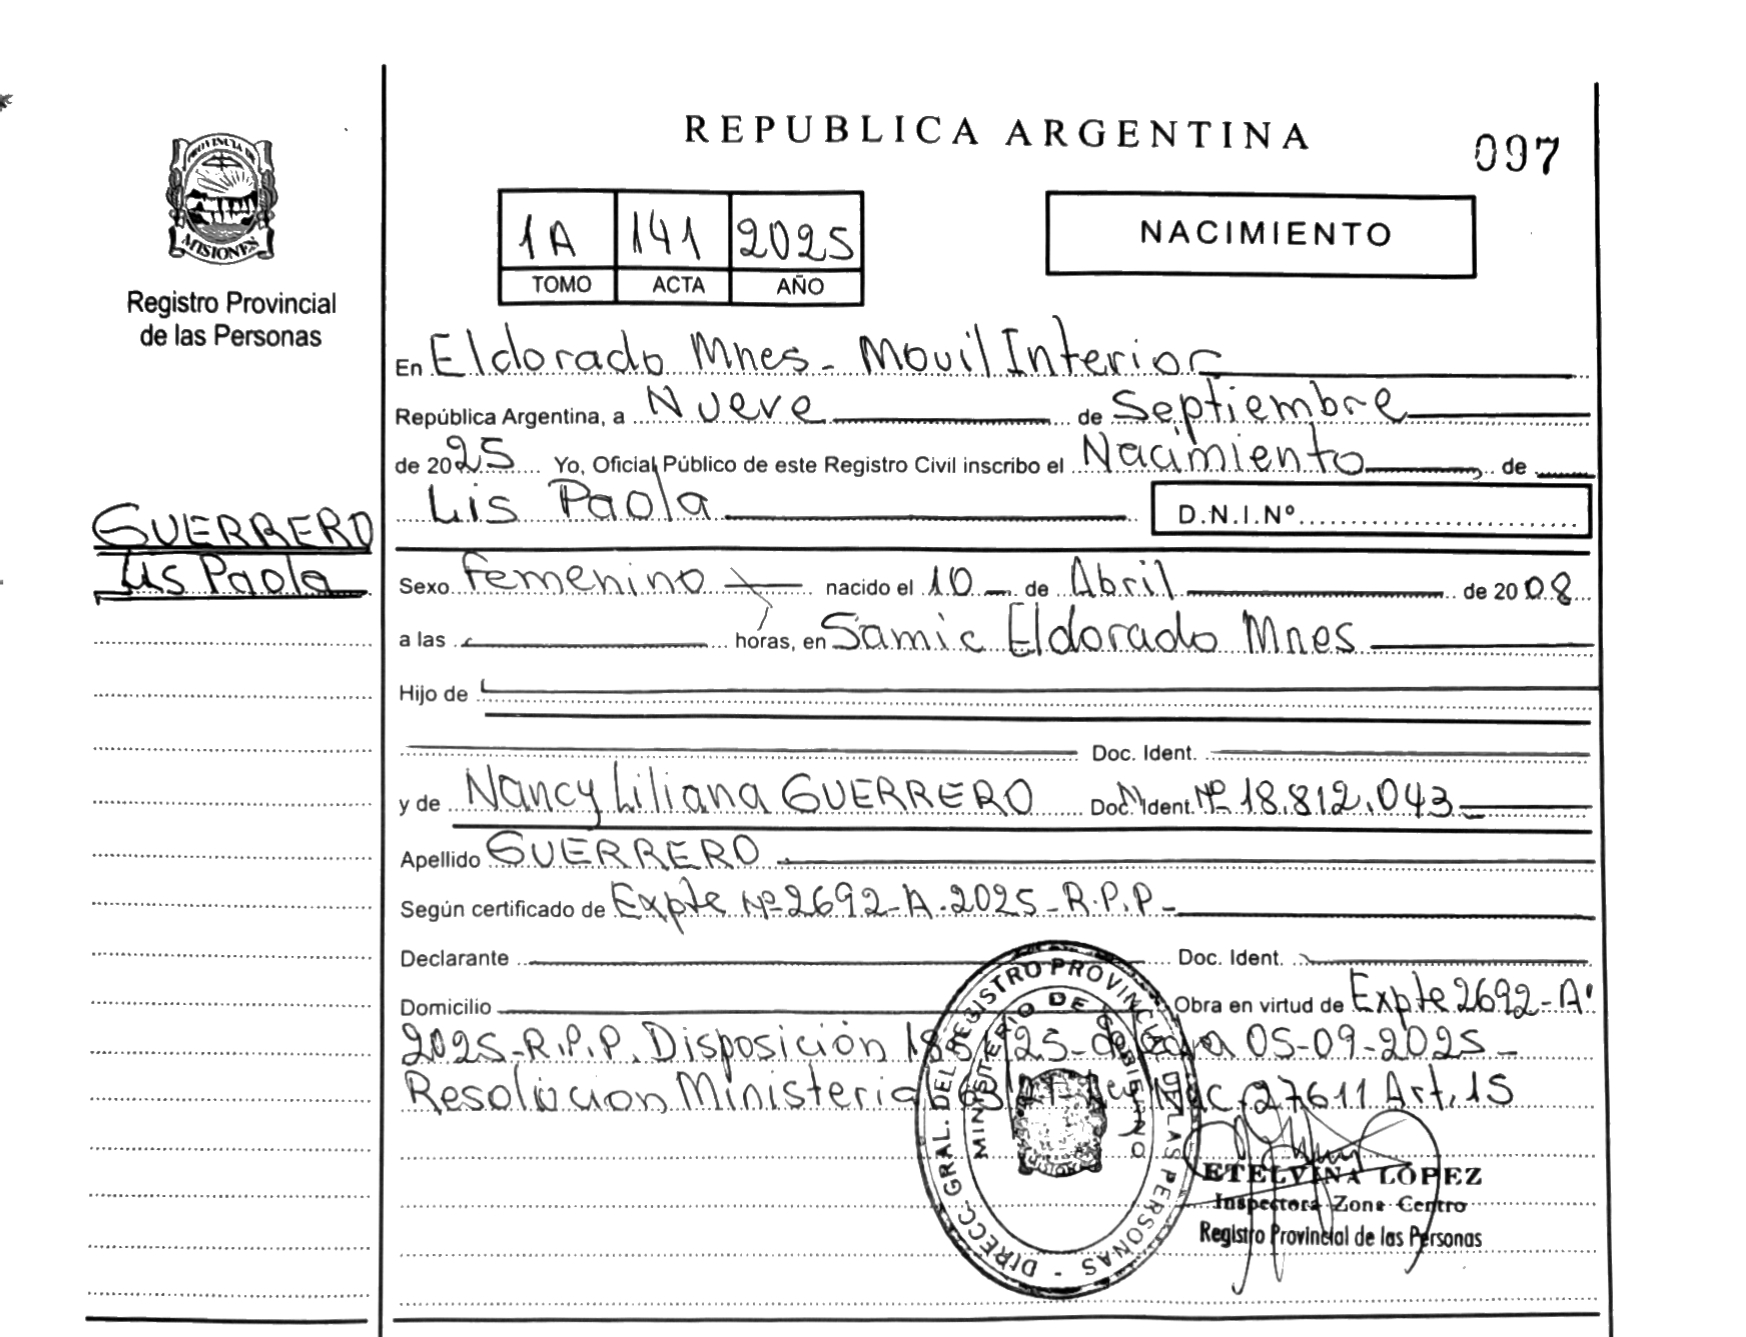 REPUBLICA ARGENTINA
097
PROVINCIA DE
MISIONES
Registro Provincial
de las Personas
1A 141 2025
TOMO ACTA AÑO
NACIMIENTO
En Eldorado Mnes - Movil Interior
República Argentina, a Nueve de Septiembre
de 2025 Yo, Oficial Público de este Registro Civil inscribo el Nacimiento, de
Lis Paola
D.N.I.Nº
GUERRERO
Lis Paola
Sexo Femenino nacido el 10 de Abril de 2008
a las horas, en Samic Eldorado Mnes
Hijo de
Doc. Ident.
y de Nancy Liliana GUERRERO Doc. Ident. Nº 18.812.043
Apellido GUERRERO
Según certificado de Expte Nº 2692-A-2025-R.P.P-
Declarante Doc. Ident.
Domicilio Obra en virtud de Expte 2692-A-
2025-R.P.P. Disposición 05-09-2025-
Resolucion Ministerial Nac. 27611 Art. 15
DIRECC. GRAL. DEL REGISTRO PROVINCIAL DE LAS PERSONAS -
MINISTERIO DE GOBIERNO
ETELVINA LOPEZ
Inspectora Zona Centro
Registro Provincial de las Personas